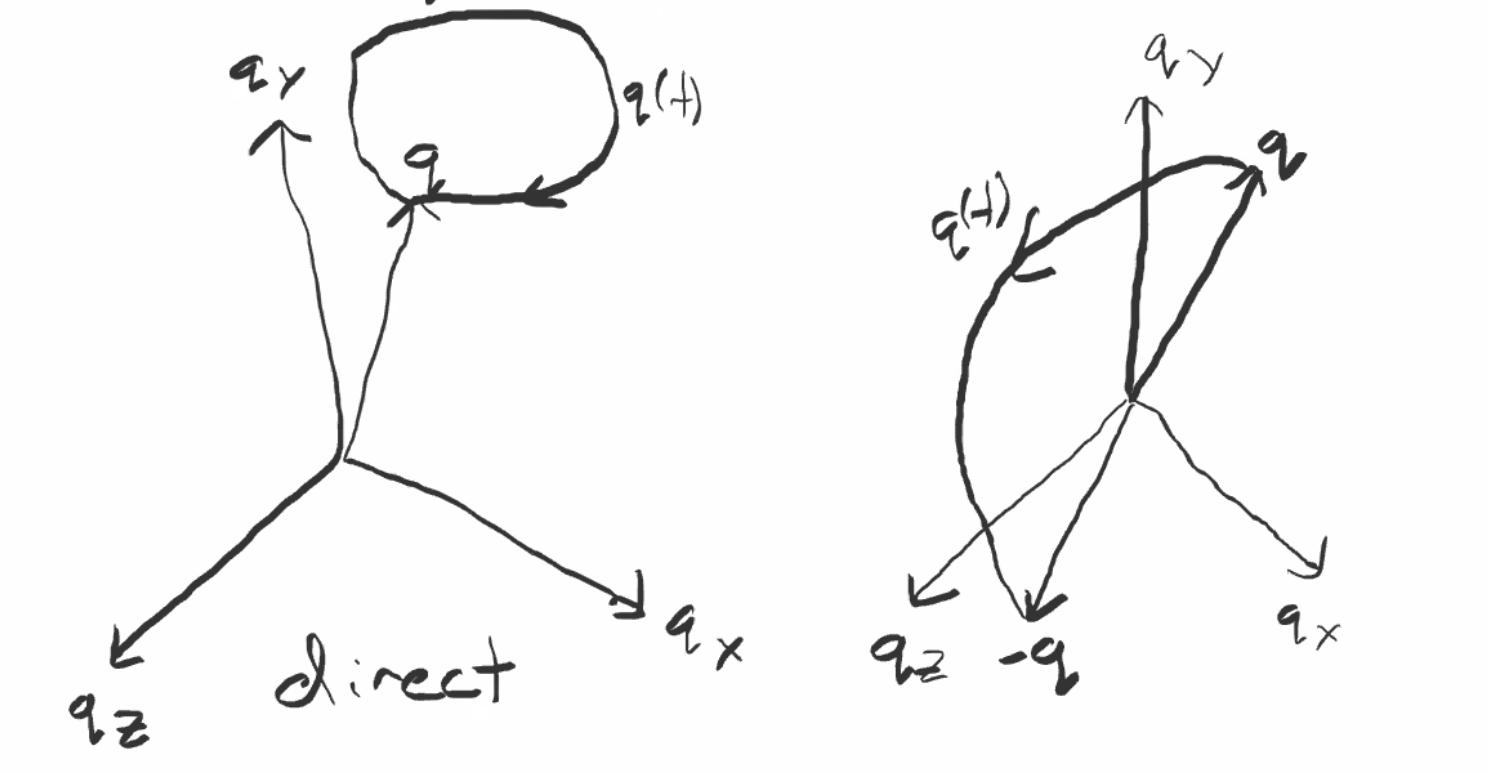 q y
q(t)
q
q x
q z
direct
q y
q
q(t)
q z
-q
q x